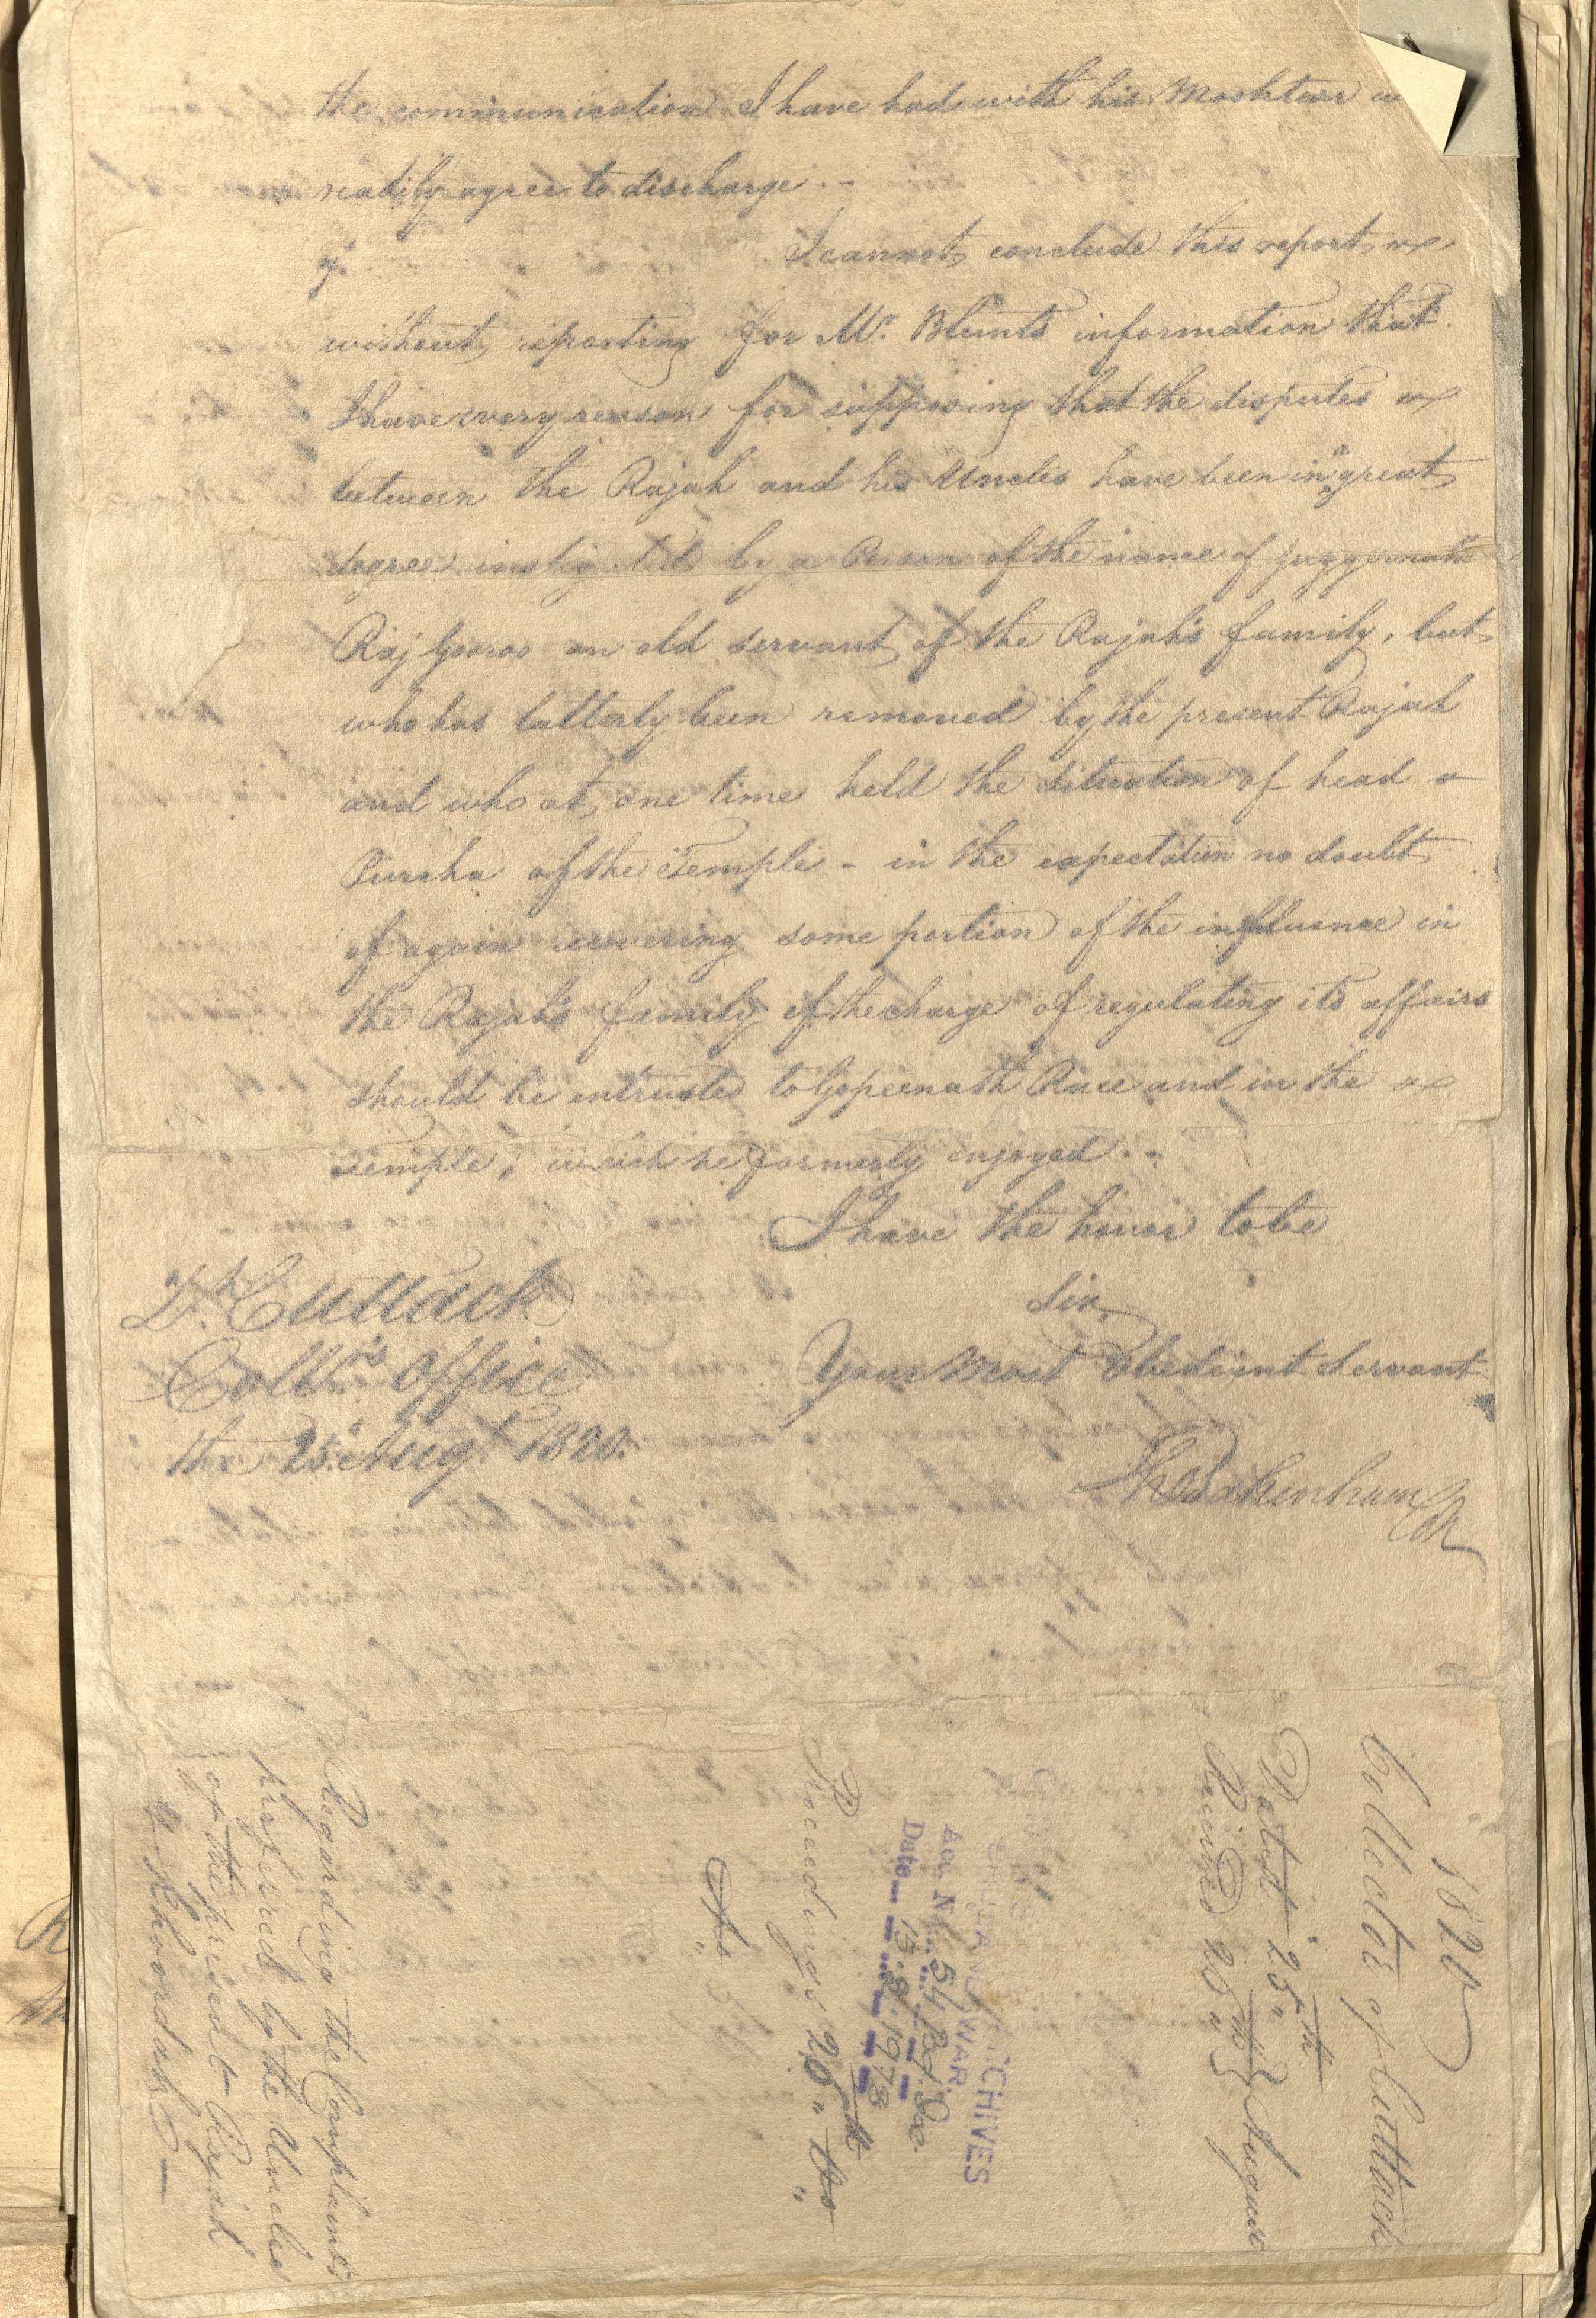 the communication I have had with his Mooktear
readily agree to discharge. -
9 I cannot conclude this report
without reporting for Mr. Blunts information that
I have every reason for supposing that the disputes
between the Rajah and his Uncles have been in a great
degree instigated by a Person of the name of Juggernath
Raj Gooroo an old servant of the Rajah's family, but
who has latterly been removed by the present Rajah
and who at one time held the situation of head
Purcha of the Temple - in the expectation no doubt
of again recovering some portion of the influence in
the Rajah's family if the charge of regulating its affairs
should be entrusted to Gopeenath Raee and in the
Temple, which he formerly enjoyed. -
I have the honor to be
Sir
Your Most Obedient Servant
Pakenham
Cuttack
Collrs. Office
the 25 Augt. 1820.
1820
Collector of Cuttack
Dated 25th
Received 26th August
ARCHIVES
Acc. No. 54
Date 15.2.1973
Proceedings 26th
No
Regarding the Complaints
preferred by the Uncles
of the present Rajah
of Khoordah